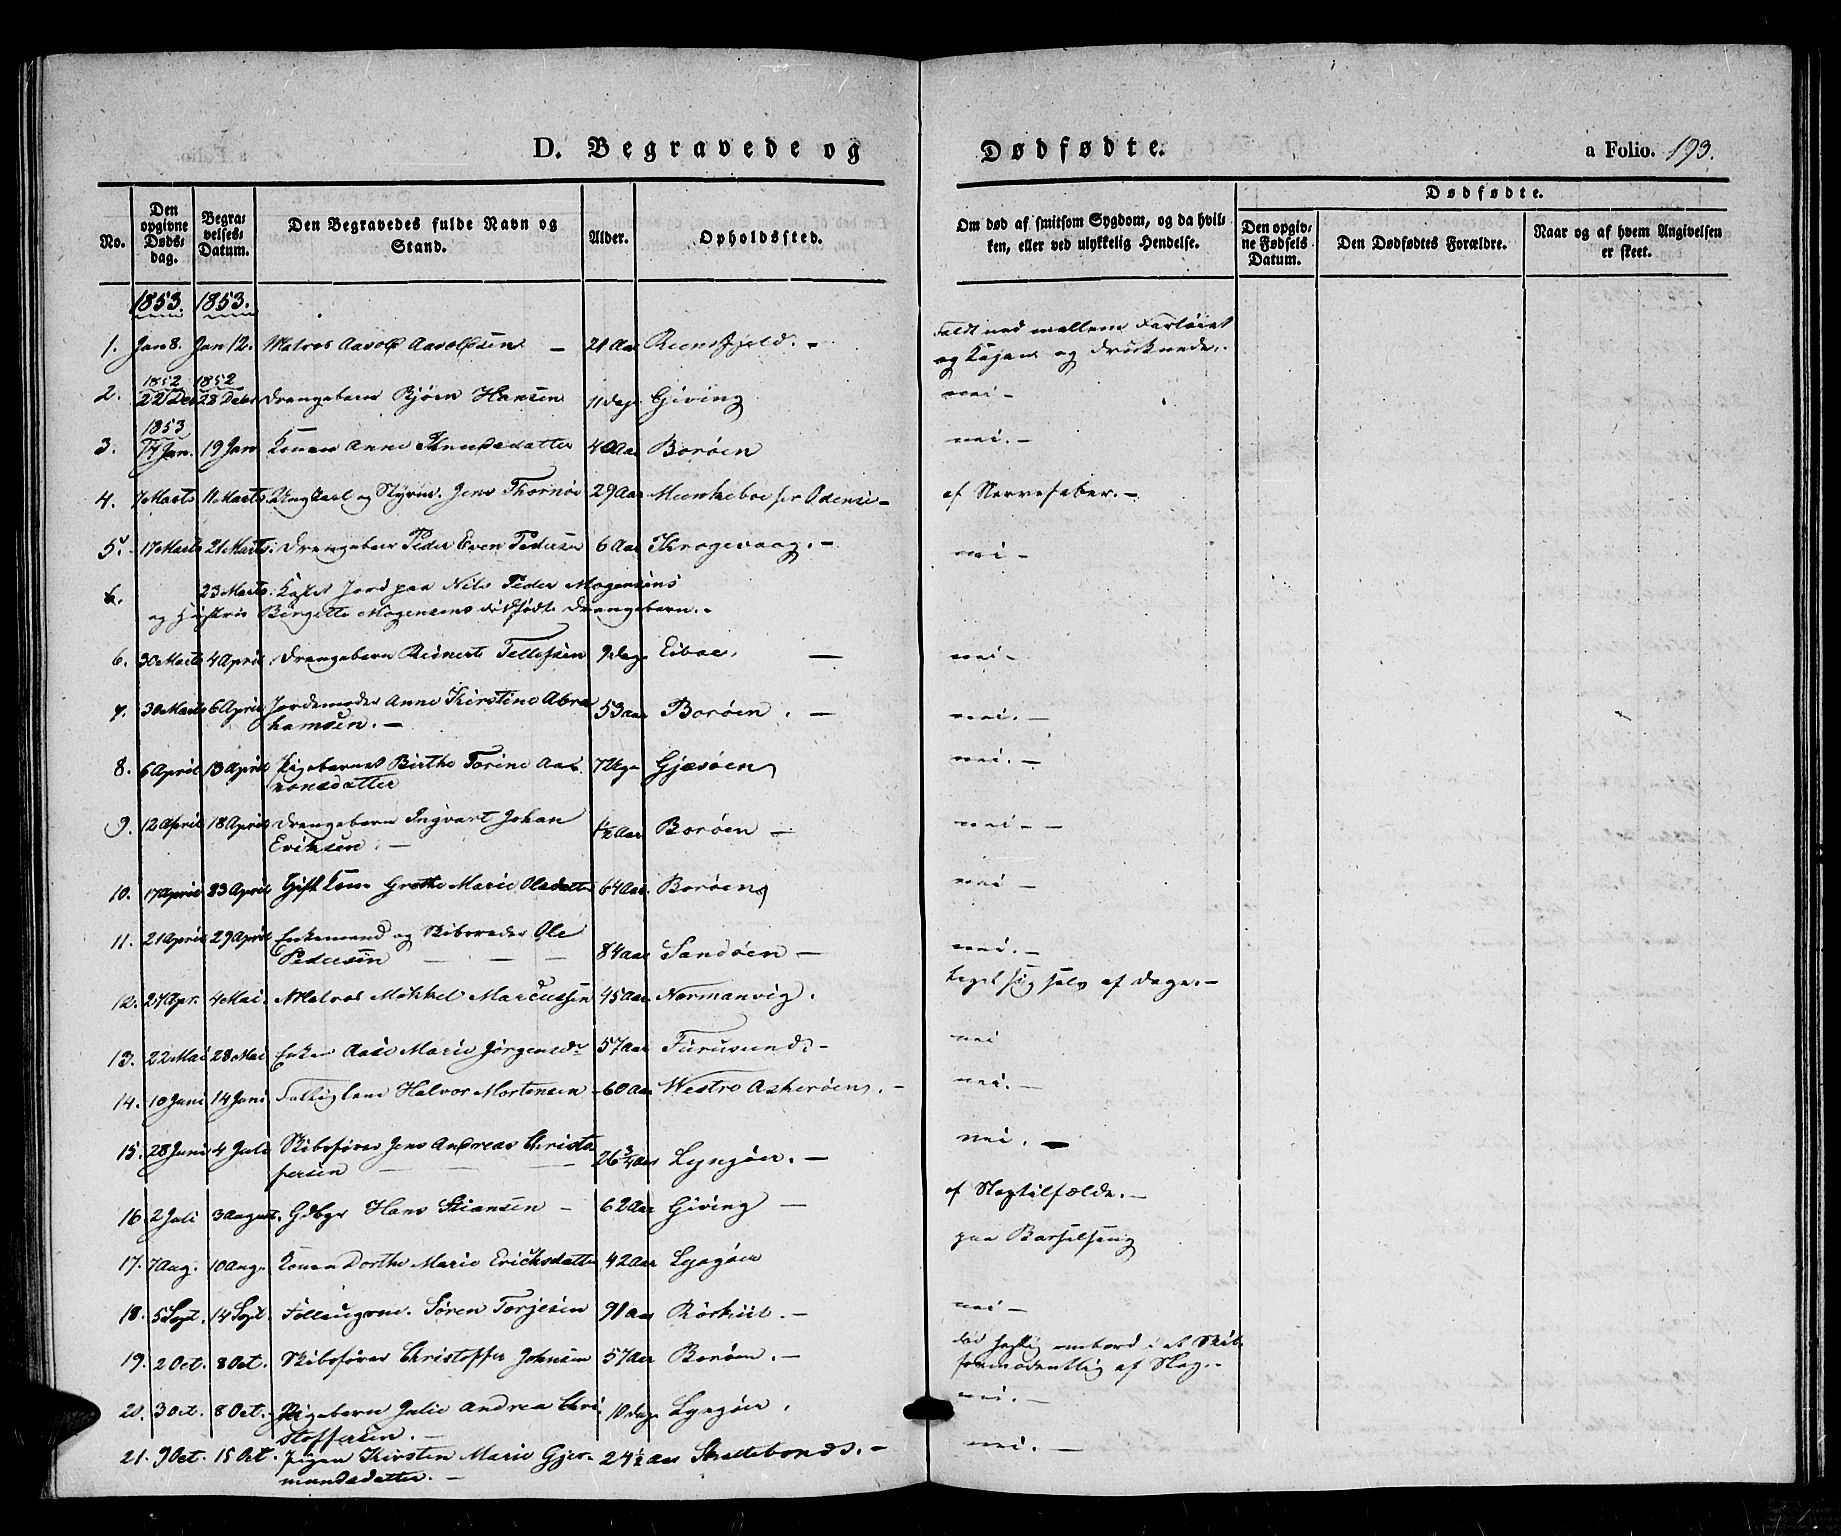 D. Begravede og Dødfødte. a Folio. 193.
Dødfødte.
No. Den opgivne Døds-dag. Begra-velses-Datum. Den Begravedes fulde Navn og Stand. Alder. Opholdssted. Om død af smitsom Sygdom, og da hvil-ken, eller ved ulykkelig Hendelse. Den opgiv-ne Fødsels Datum. Den Dødfødtes Forældre. Naar og af hvem Angivelsen er skeet.
1853. 1853.
1. Jan 8. Jan 12. Matros Aavolf Aavolfsen – 21 Aar – Faldt ned mellem Fartøiet
og Kajen og druknede.
1852 1852
2. 22 Dec 28 Decbr Drengebarn Bjørn Hansen 11 dage Giving nei –
1853
3. 14 Jan. 19 Jan Konen Anne Knudsdatter 40 Aar Borøen nei. –
4. 7 Marts 11 Marts Ungkarl og Styrm. Jens Thornøe 29 Aar Munkeboe for Odense – af Nervefeber. –
5. 17 Marts 21 Marts. Drengebarn Peder Even Pedersen 6 Aar Krogevaag. – nei –
6. 23 Marts. Kastet Jord paa Nils Peder Mogensens
og Hustrue Birgitte Mogensens dødfødte Drengebarn. –
6. 30 Marts 4 April Drengebarn Reinert Tellefsen 9 dage Eiboe. – nei –
7. 30 Marts 6 April Jordemoder Anne Kirstine Abra
hamsen. – 53 aar Borøen. – nei. –
8. 6 April 13 April Pigebarnet Birthe Torine Aa-
ronsdatter 7 Uge Gjæsøen nei. –
9. 12 April 18 April Drengebarn Ingvart Johan
Eriksen. – ½ Aar Borøen – nei – –
10. 17 April 23 April Gift Kone Grethe Marie Olsdatter 64 Aar. Borøen nei –
11. 21 April 29 April Enkemand og Skibsreder Ole
Pedersen – – – 84 aar Sandøen – nei. –
12. 27 Apr. 4 Mai. Matros Mekkel Marcussen 45 Aar Normanvig. taget sig selv af dage. –
13. 22 Mai 28 Mai Enken Aase Marie Jørgensdr 57 Aar Furusund. – nei
14. 10 Juni 14 Juni Fattiglem Halvor Mortensen – 60 Aar Westre Askerøen. – nei. –
15. 28 Juni 4 Juli Skibsfører Jens Andreas Christo-
fersen – – – 26 ¾ Aar Lyngøer. – nei. –
16. 2 Juli 3 August. Gdbgr Hans Stiansen – 62 Aar Giving – af Slagtilfælde. –
17. 7 Aug. 10 Aug. Konen Dorthe Marie Erichsdatter 42 Aar Lyngøer paa Barselseng
18. 5 Sept. 14 Sept. Søren Terjesen 91 Aar Rørkiil. – nei –
19. 2 Oct. 8 Oct. Skibsfører Christoffer Johnsen 57 Aar Borøen. – ombord i et Skib,
formodentlig af Slag. –
20. 3 Oct. 8 Oct. – Pigebarn Julie Andrea Chri-
stoffersen. – 10 dage Lyngøer. nei. –
21. 9 Oct. 15 Oct. Pigen Kirsten Marie Gjer-
mundsdatter. – 24 ½ Aar Skottebonds. – nei. –